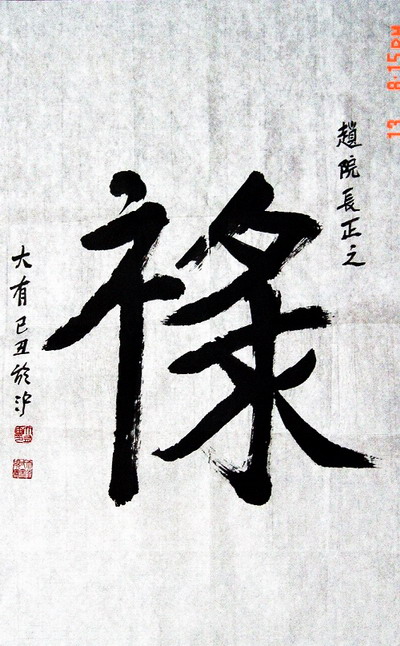 趙院長正之
祿
大有己丑於沪
13 8:15PM